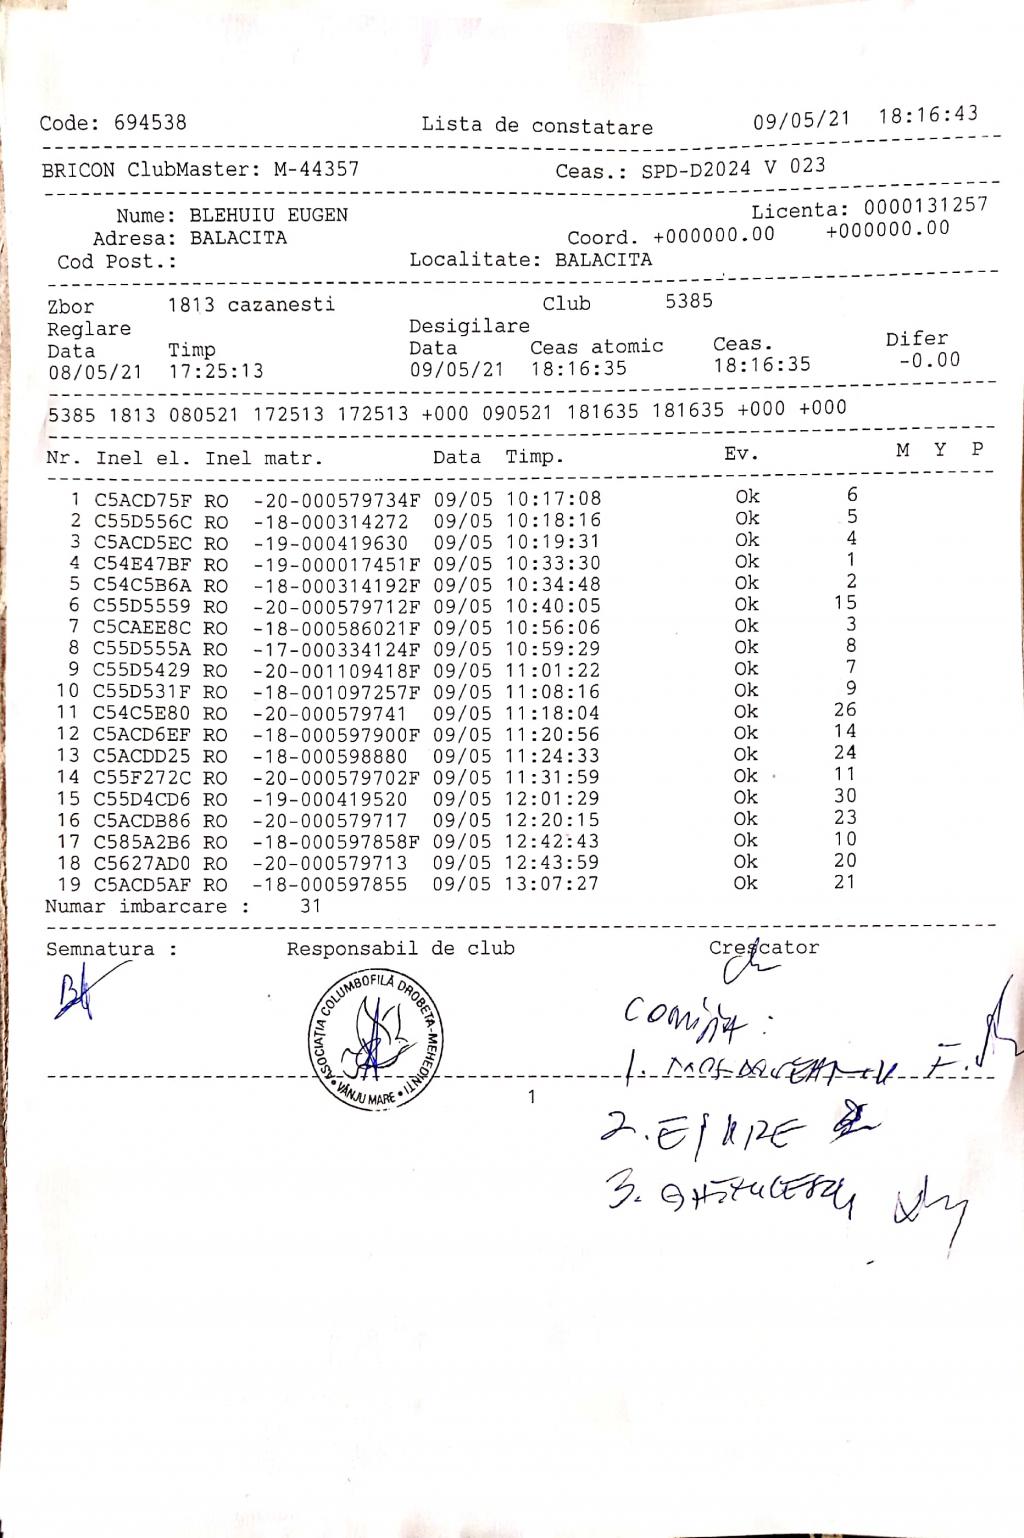 Code: 694538 Lista de constatare 09/05/21 18:16:43
BRICON ClubMaster: M-44357 Ceas.: SPD-D2024 V 023
Nume: BLEHUIU EUGEN Licenta: 0000131257
Adresa: BALACITA Coord. +000000.00 +000000.00
Cod Post.: Localitate: BALACITA
Zbor 1813 cazanesti Club 5385
Reglare Desigilare
Data Timp Data Ceas atomic Ceas. Difer
08/05/21 17:25:13 09/05/21 18:16:35 18:16:35 -0.00
5385 1813 080521 172513 172513 +000 090521 181635 181635 +000 +000
Nr. Inel el. Inel matr. Data Timp. Ev. M Y P
1 C5ACD75F RO -20-000579734F 09/05 10:17:08 Ok 6
2 C55D556C RO -18-000314272 09/05 10:18:16 Ok 5
3 C5ACD5EC RO -19-000419630 09/05 10:19:31 Ok 4
4 C54E47BF RO -19-000017451F 09/05 10:33:30 Ok 1
5 C54C5B6A RO -18-000314192F 09/05 10:34:48 Ok 2
6 C55D5559 RO -20-000579712F 09/05 10:40:05 Ok 15
7 C5CAEE8C RO -18-000586021F 09/05 10:56:06 Ok 3
8 C55D555A RO -17-000334124F 09/05 10:59:29 Ok 8
9 C55D5429 RO -20-001109418F 09/05 11:01:22 Ok 7
10 C55D531F RO -18-001097257F 09/05 11:08:16 Ok 9
11 C54C5E80 RO -20-000579741 09/05 11:18:04 Ok 26
12 C5ACD6EF RO -18-000597900F 09/05 11:20:56 Ok 14
13 C5ACDD25 RO -18-000598880 09/05 11:24:33 Ok 24
14 C55F272C RO -20-000579702F 09/05 11:31:59 Ok 11
15 C55D4CD6 RO -19-000419520 09/05 12:01:29 Ok 30
16 C5ACDB86 RO -20-000579717 09/05 12:20:15 Ok 23
17 C585A2B6 RO -18-000597858F 09/05 12:42:43 Ok 10
18 C5627AD0 RO -20-000579713 09/05 12:43:59 Ok 20
19 C5ACD5AF RO -18-000597855 09/05 13:07:27 Ok 21
Numar imbarcare : 31
Semnatura : Responsabil de club Crescator
ASOCIAȚIA COLUMBOFILĂ DROBETA-MEHEDINȚI
VÂNJU MARE
1.
1
2.
3.